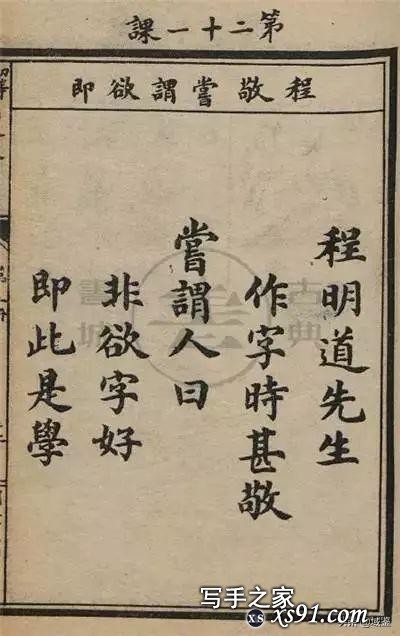 第二十一課
程敬嘗謂欲即
程明道先生
作字時甚敬
嘗謂人曰
非欲字好
即此是學
古典書城
写手之家
xs91.com
XS